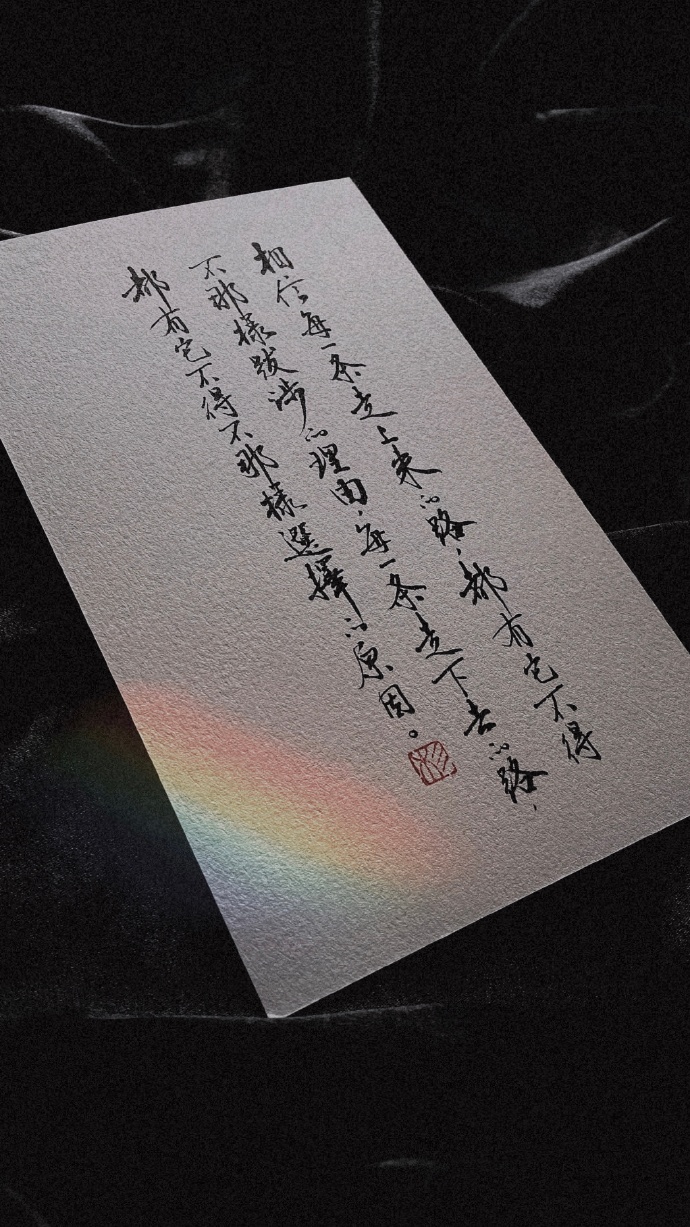 相信每一条走上来的路，都有它不得
不那樣跋涉的理由，每一条走下去的路，
都有它不得不那樣選擇的原因。